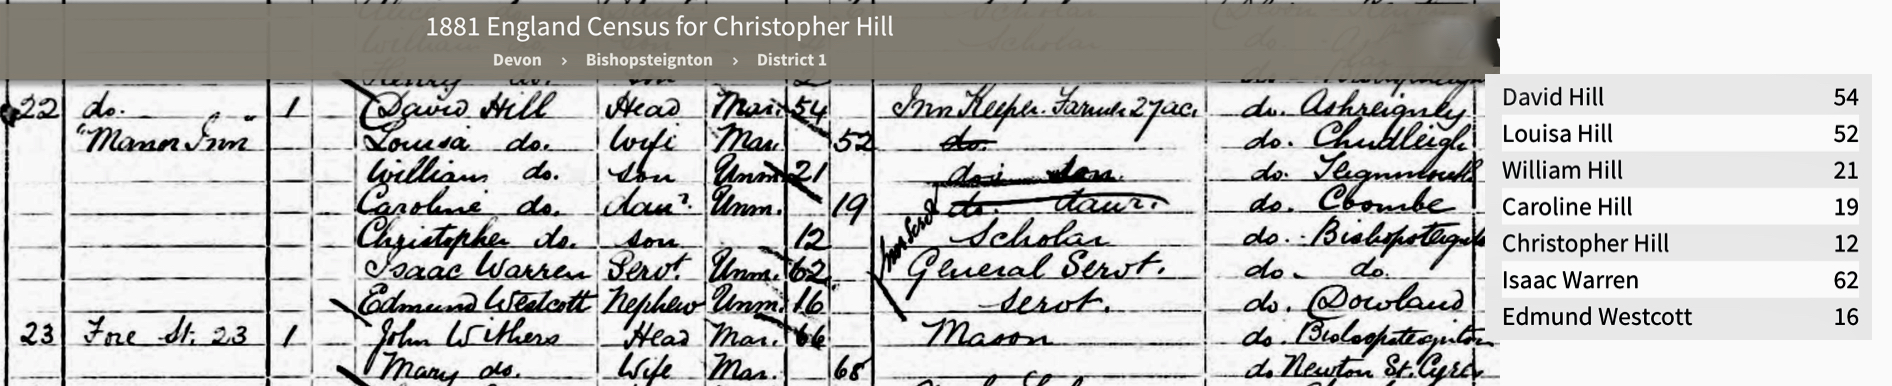 1881 England Census for Christopher Hill
Devon › Bishopsteignton › District 1
22 do. 1 David Hill Head Mar. 54 Inn Keeper. Farmer 27 ac. do. Ashreigney
"Manor Inn" Louisa do. Wife Mar. 52 do. do. Chudleigh
William do. son Unm. 21 do. son. do. Teignmouth
Caroline do. daur. Unm. 19 do. daur. do. Coombe
Christopher do. son 12 Scholar do. Bishopsteignton
Isaac Warren Servt. Unm. 62 General Servt. do. do.
Edmund Westcott Nephew Unm. 16 Servt. do. Dowland
23 Fore St. 23 1 John Withers Head Mar. 66 Mason do. Bishopsteignton
Mary do. Wife Mar. 68 do Newton St. Cyres
David Hill 54
Louisa Hill 52
William Hill 21
Caroline Hill 19
Christopher Hill 12
Isaac Warren 62
Edmund Westcott 16